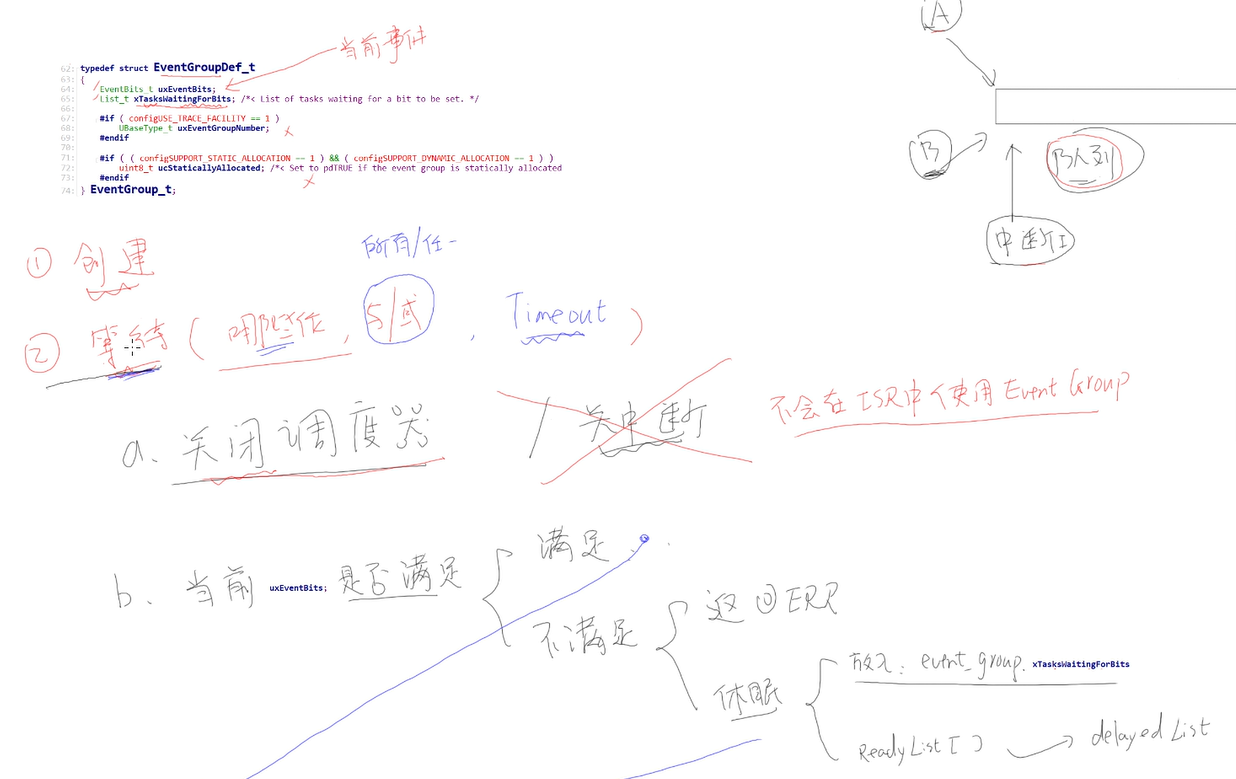 当前事件
62: typedef struct EventGroupDef_t
63: {
64: EventBits_t uxEventBits;
65: List_t xTasksWaitingForBits; /*< List of tasks waiting for a bit to be set. */
66:
67: #if ( configUSE_TRACE_FACILITY == 1 )
68: UBaseType_t uxEventGroupNumber;
69: #endif
70:
71: #if ( ( configSUPPORT_STATIC_ALLOCATION == 1 ) && ( configSUPPORT_DYNAMIC_ALLOCATION == 1 ) )
72: uint8_t ucStaticallyAllocated; /*< Set to pdTRUE if the event group is statically allocated
73: #endif
74: } EventGroup_t;
A
B
队列
中断I
① 创建
所有/任一
② 等待 ( 哪些位, 与/或, Timeout )
a. 关闭调度器 / 关中断
不会在ISR中使用Event Group
b. 当前 uxEventBits; 是否满足
满足
不满足
返回ERR
休眠
放入: event_group. xTasksWaitingForBits
ReadyList[ ] → delayed List